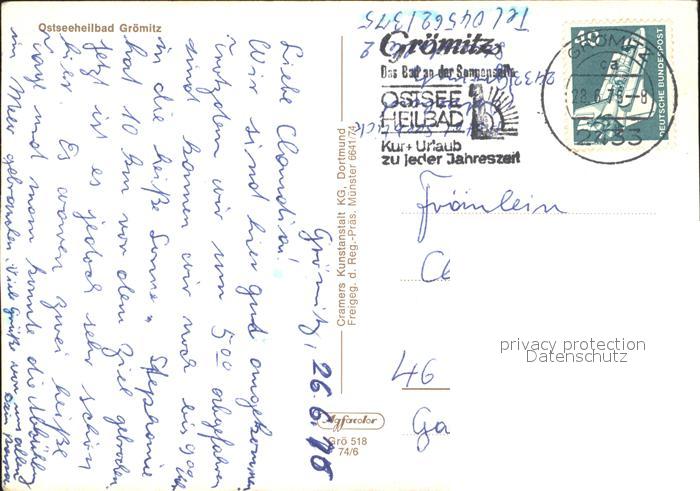 Ostseeheilbad Grömitz
Grömitz, 26.6.76
Liebe Claudia!
Wir sind hier gut angekommen,
trotzdem wir um 5 00 abgefahren
sind kamen wir noch bis 9 00 Uhr
in die heiße Sonne. Stephanie
hat 10 km vor dem Ziel gebrochen.
Jetzt ist es jedoch sehr schön
hier. Es waren zwei heiße
und man konnte die Abkühlung
im Meer gebrauchen. Viele Grüße von uns allen
Cramers Kunstanstalt KG, Dortmund
Freigeg. d. Reg.-Präs. Münster 6641/74
Agfacolor
Grö 518
74/6
Tel 04562/375
Grömitz
Das Bad an der Sonnenseite
OSTSEE
HEILBAD
Kur + Urlaub
zu jeder Jahreszeit
GRÖMITZ
ca
28.6.76-8
2433
40
DEUTSCHE BUNDESPOST
Fräulein
Cl
46
Ga
privacy protection
Datenschutz